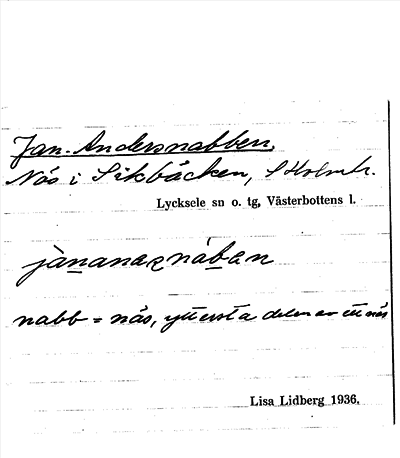 Jan-Andersnabben,
Näs i Sikbäcken,
Lycksele sn o. tg, Västerbottens l.
jànanaṣnában
nabb = näs, yttersta delen av ett näs
Lisa Lidberg 1936.